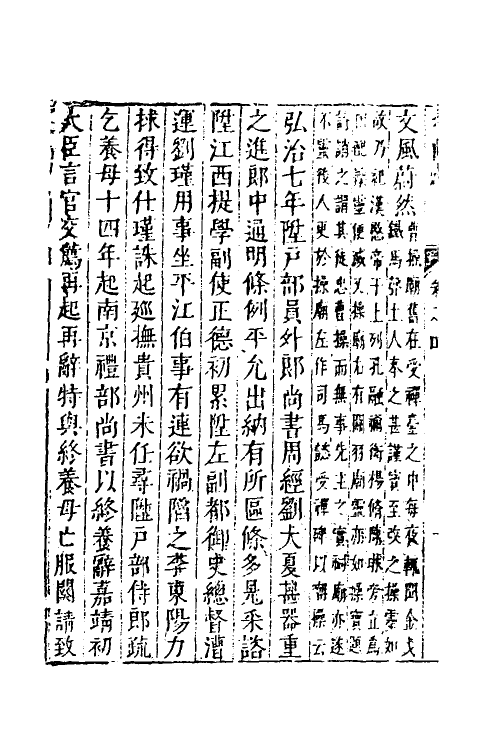 文風蔚然曹操廟舊在受禪臺之中每夜輒聞金戈
鐵馬聲土人奉之甚謹寶至改之操靈如
故乃祀漢愍帝于上列孔融禰衡楊脩
不靈後人更於操廟左作司馬懿受禪碑以
弘治七年陞戶部員外郎尚書周經劉大夏甚器重
之進郎中通明條例平允出納有所區條多見采諮
陞江西提學副使正德初累陞左副都御史總督漕
運劉瑾用事坐平江伯事有連欲禍陷之李東陽力
捄得致仕瑾誅起廵撫貴州未任尋陞戶部侍郎疏
乞養母十四年起南京禮部尚書以終養辭嘉靖初
大臣言官交薦再起再辭特與終養母亡服闋請致